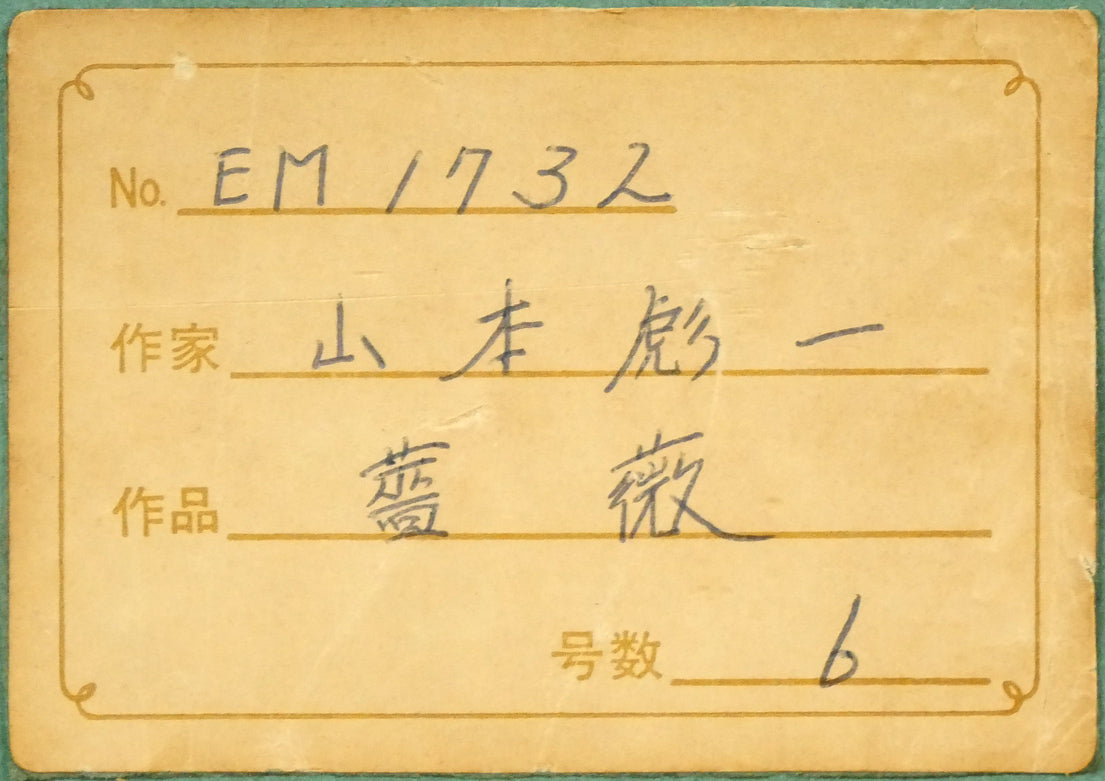 No. EM1732
作家 山本彪一
作品 薔薇
号数 6